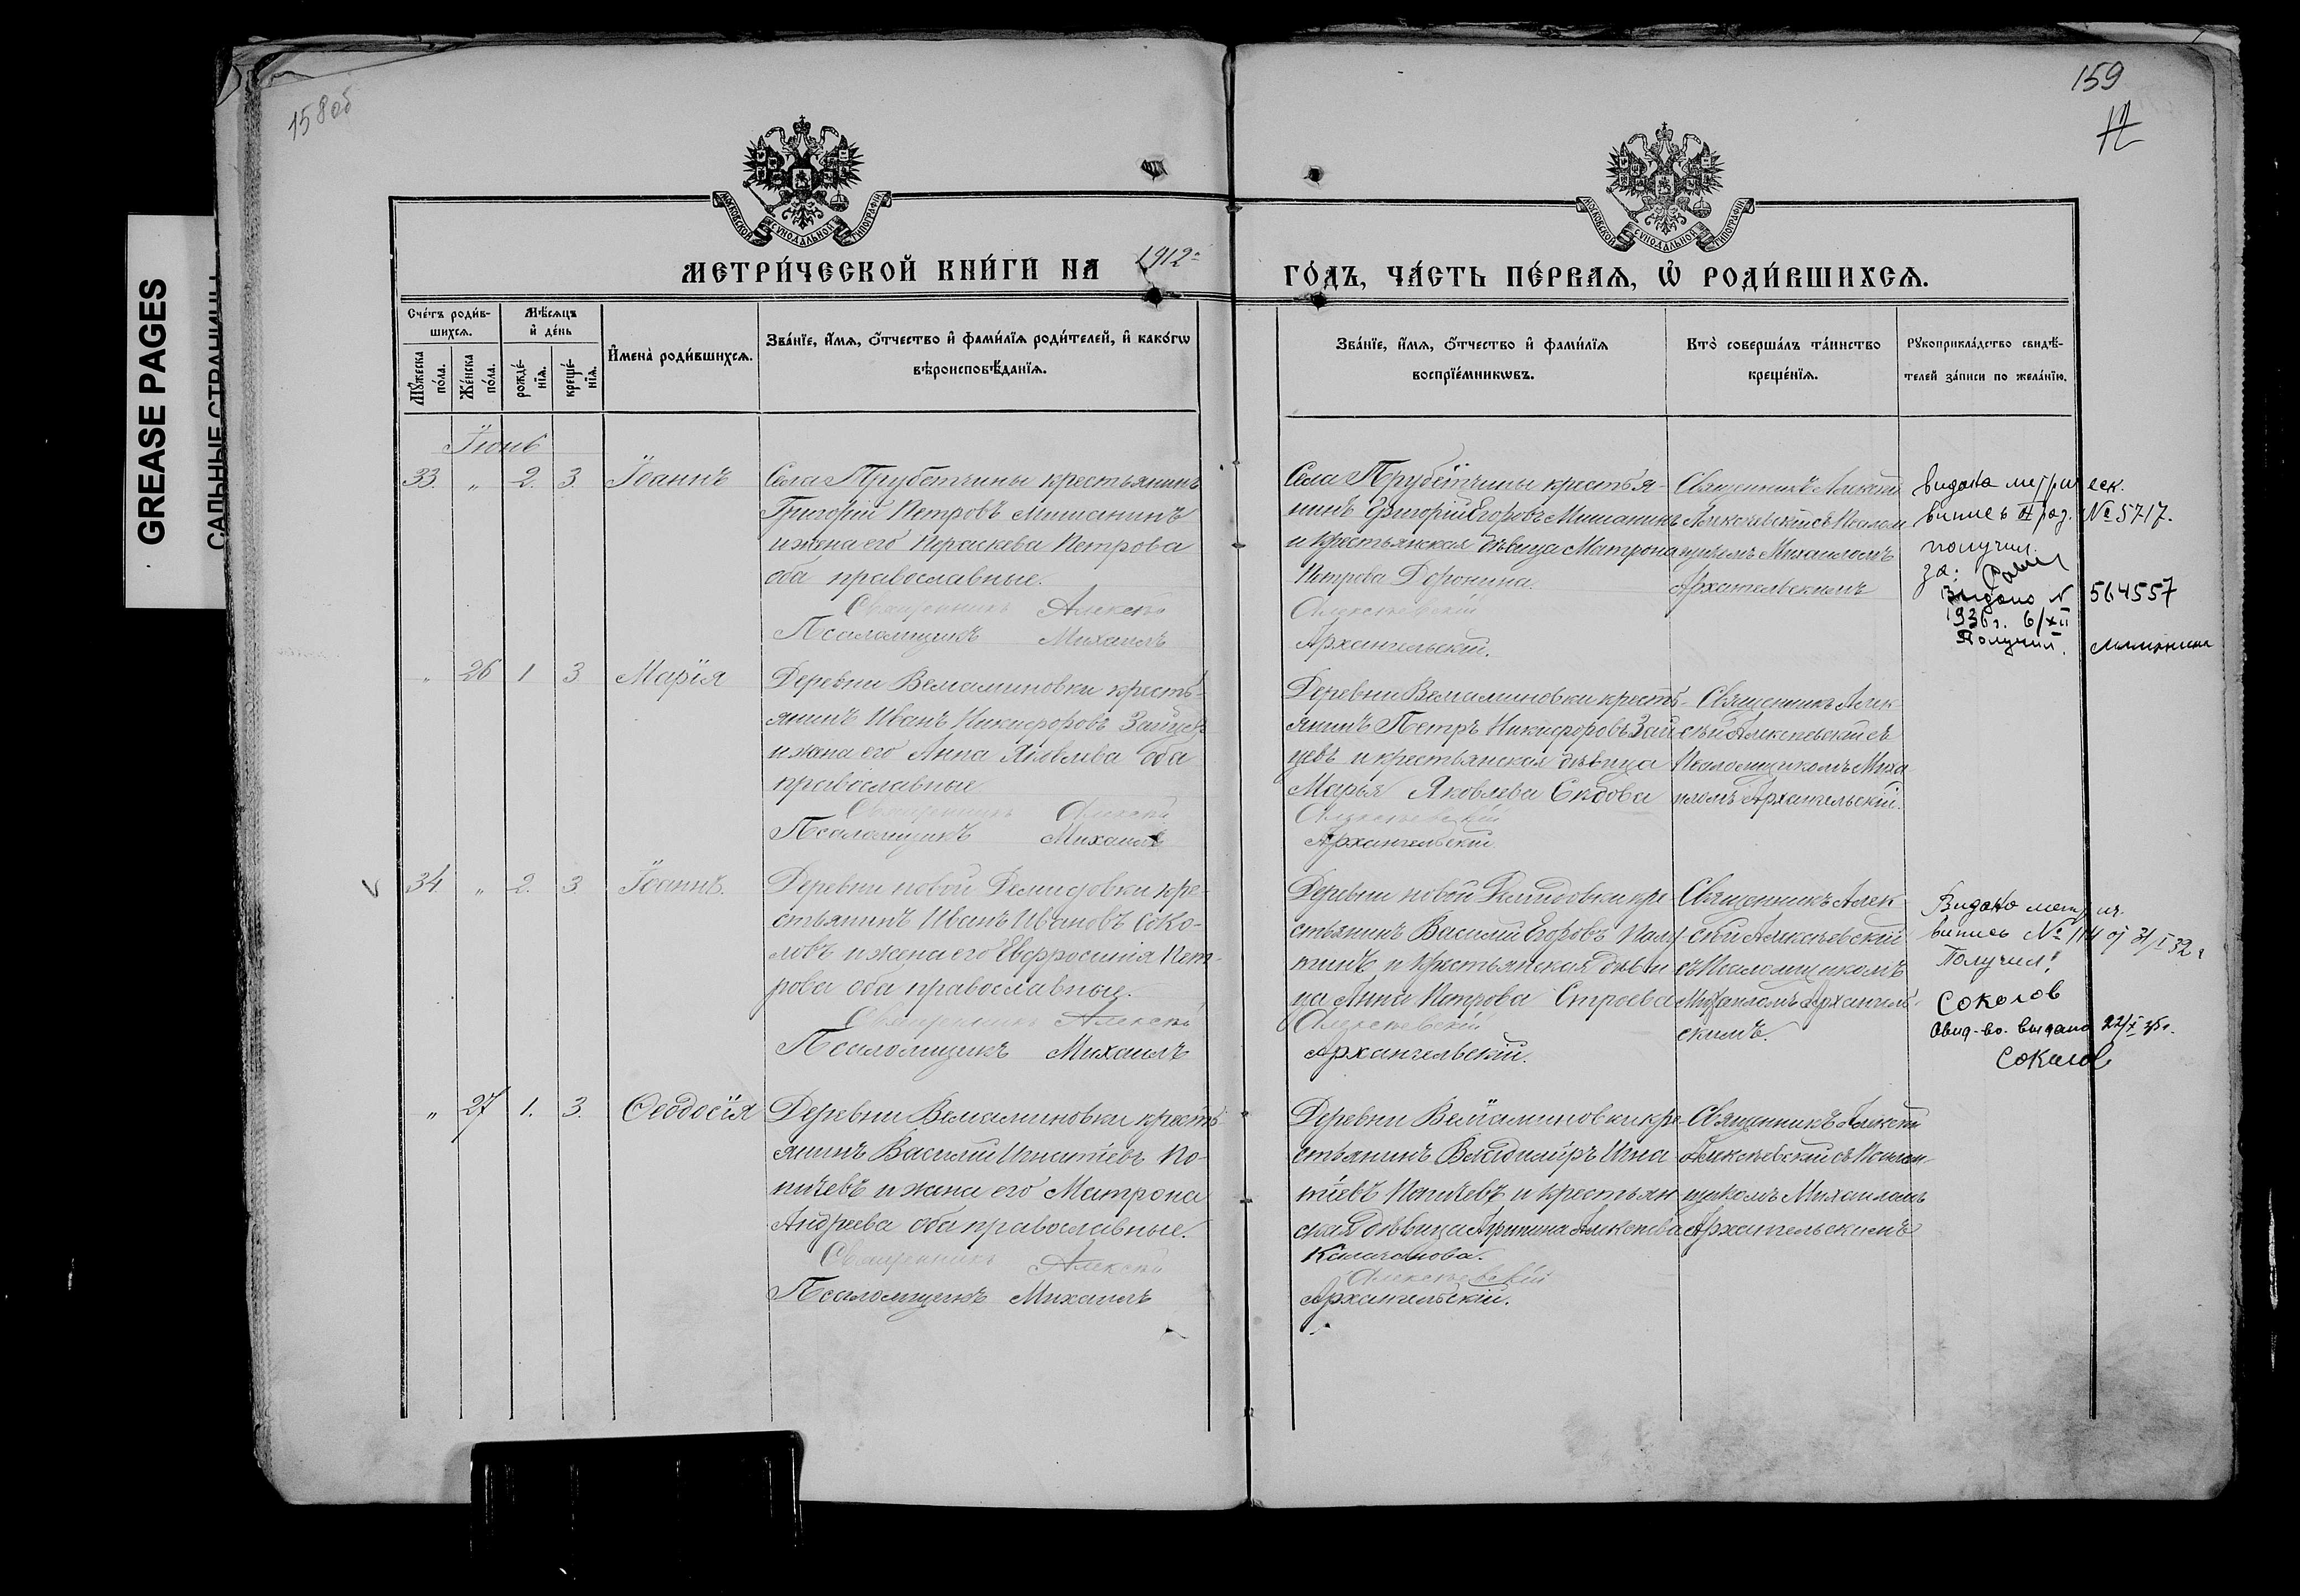 GREASE PAGES
САЛЬНЫЕ СТРАНИЦЫ
158об
159
МОСКОВСКОЙ СѴНОДАЛЬНОЙ ТИПОГРАФІИ
МОСКОВСКОЙ СѴНОДАЛЬНОЙ ТИПОГРАФІИ
МЕТРИ́ЧЕСКОЙ КНИ́ГИ НА 1912 ГО́ДЪ, ЧА́СТЬ ПЕ́РВАѦ, Ѡ РОДИ́ВШИХСѦ.
Сче́тъ роди́в-
шихсѧ.
Мꙋ́жеска по́ла.
Же́нска по́ла.
Мѣ́сѧцъ
и҆ де́нь
рожде́нїѧ.
креще́нїѧ.
И҆мена̀ роди́вшихсѧ.
Зва́нїе, и҆́мѧ, ѻ҆́тчество и҆ фами́лїѧ роди́телей, и҆ како́гѡ
вѣроисповѣ́данїѧ.
Зва́нїе, и҆́мѧ, ѻ҆́тчество и҆ фами́лїѧ
воспрїе́мникѡвъ.
Кто̀ соверша́лъ та́инство
креще́нїѧ.
Рꙋкоприкла́дство свидѣ́-
телей за́писи по жела́нїю.
Іюнь
33. " 2. 3. Іоаннъ
Села Трубетчины крестьянинъ
Григорій Петровъ Мишанинъ
и жена его Параскева Петрова
оба православные.
Священникъ Алексѣй
Псаломщикъ Михаилъ
Села Трубетчины крестья-
нинъ Григорій Егоровъ Мишанинъ
и крестьянская дѣвица Матрона
Петрова Доронина.
Алексѣевскій
Архангельскій.
Священникъ Алексѣй
Алексѣевскій съ Псалом
щикомъ Михаиломъ
Архангельскимъ
видана метрическ.
випись № 5717.
получил
за:
Видано № 564557
1936 г. 6/XII
Получил.
" 26 1 3 Марія
Деревни Вельяминовки кресть-
янинъ Иванъ Никифоровъ Зайцевъ
и жена его Анна Яковлева оба
православные
Священникъ Алексѣй
Псаломщикъ Михаилъ
Деревни Вельяминовки кресть-
янинъ Петръ Никифоровъ Зай
цевъ и крестьянская дѣвица
Марья Яковлева
Алексѣевскій
Архангельскій.
Священникъ Алек
сѣй Алексѣевскій съ
Псаломщикомъ Миха
иломъ Архангельскій.
34 " 2. 3 Іоаннъ.
Деревни новой Демидовки кре-
стьянинъ Иванъ Ивановъ Соко-
ловъ и жена его Евфросинія Пет-
рова оба православные.
Священникъ Алексѣй
Псаломщикъ Михаилъ
Деревни новой Демидовки кре
стьянинъ Василій Егоровъ
и крестьянская дѣви
ца Анна Петрова Строева
Алексѣевскій
Архангельскій.
Священникъ Алек
сѣй Алексѣевскій
съ Псаломщикомъ
Михаиломъ Архангель-
скимъ.
Видано метрич.
випись № 114 от 31/I 32 г
Получил
Соколов
Свид-во. выдано 22/X 35 г.
Соколов
" 27 1. 3. Ѳеодосія
Деревни Вельяминовки кресть-
янинъ Василій Игнатіевъ По-
пичевъ и жена его Матрона
Андреева оба православные.
Священникъ Алексѣй
Псаломщикъ Михаилъ
Деревни Вельяминовки кре-
стьянинъ Владиміръ Игна-
тіевъ Попичевъ и крестьян
ская дѣвица Агрипина Алексѣева
Алексѣевскій
Архангельскій.
Священникъ Алексѣй
Алексѣевскій съ Псалом-
щикомъ Михаиломъ
Архангельскимъ